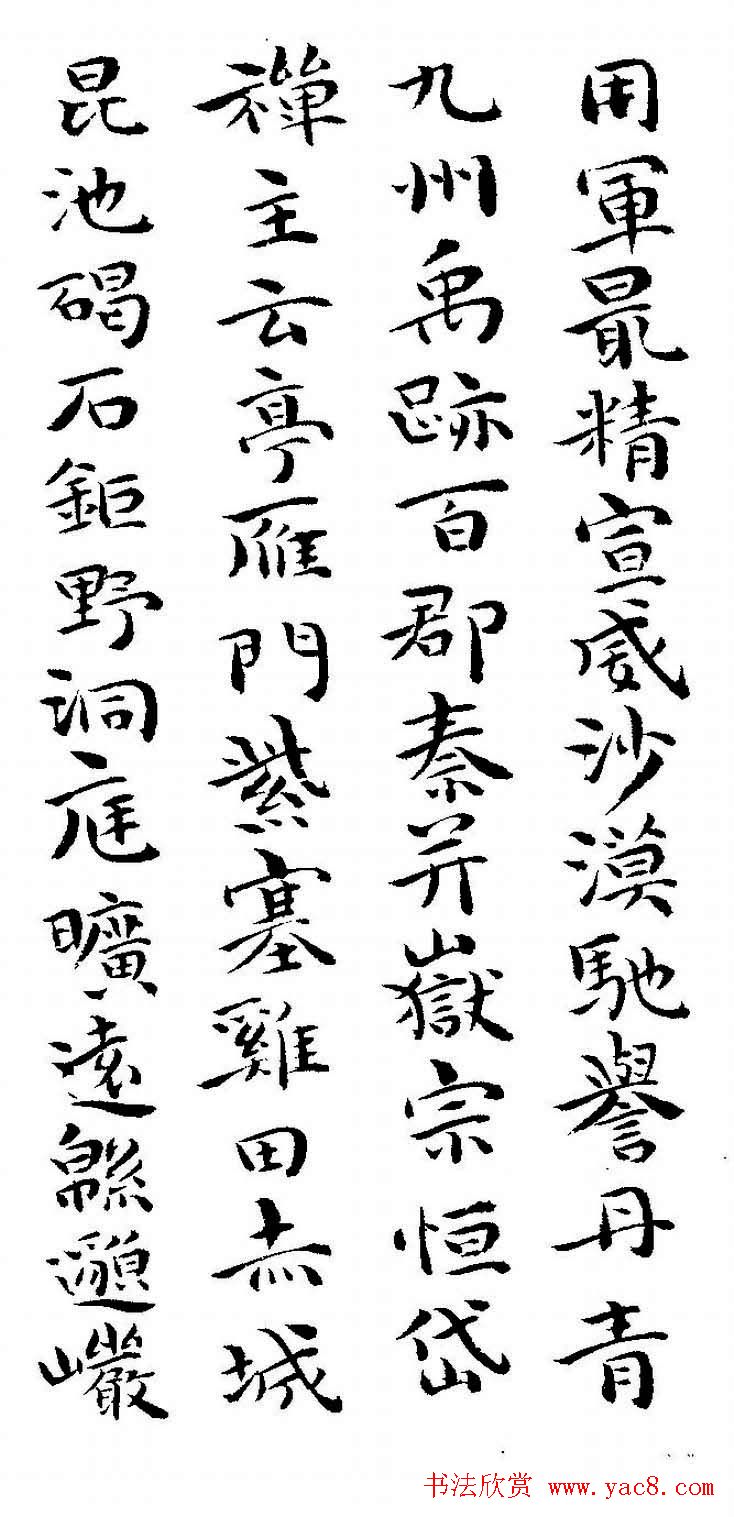 用軍最精宣威沙漠馳譽丹青
九州禹跡百郡秦并嶽宗恒岱
禪主云亭雁門紫塞雞田赤城
昆池碣石鉅野洞庭曠遠緜邈巖
书法欣赏 www.yac8.com